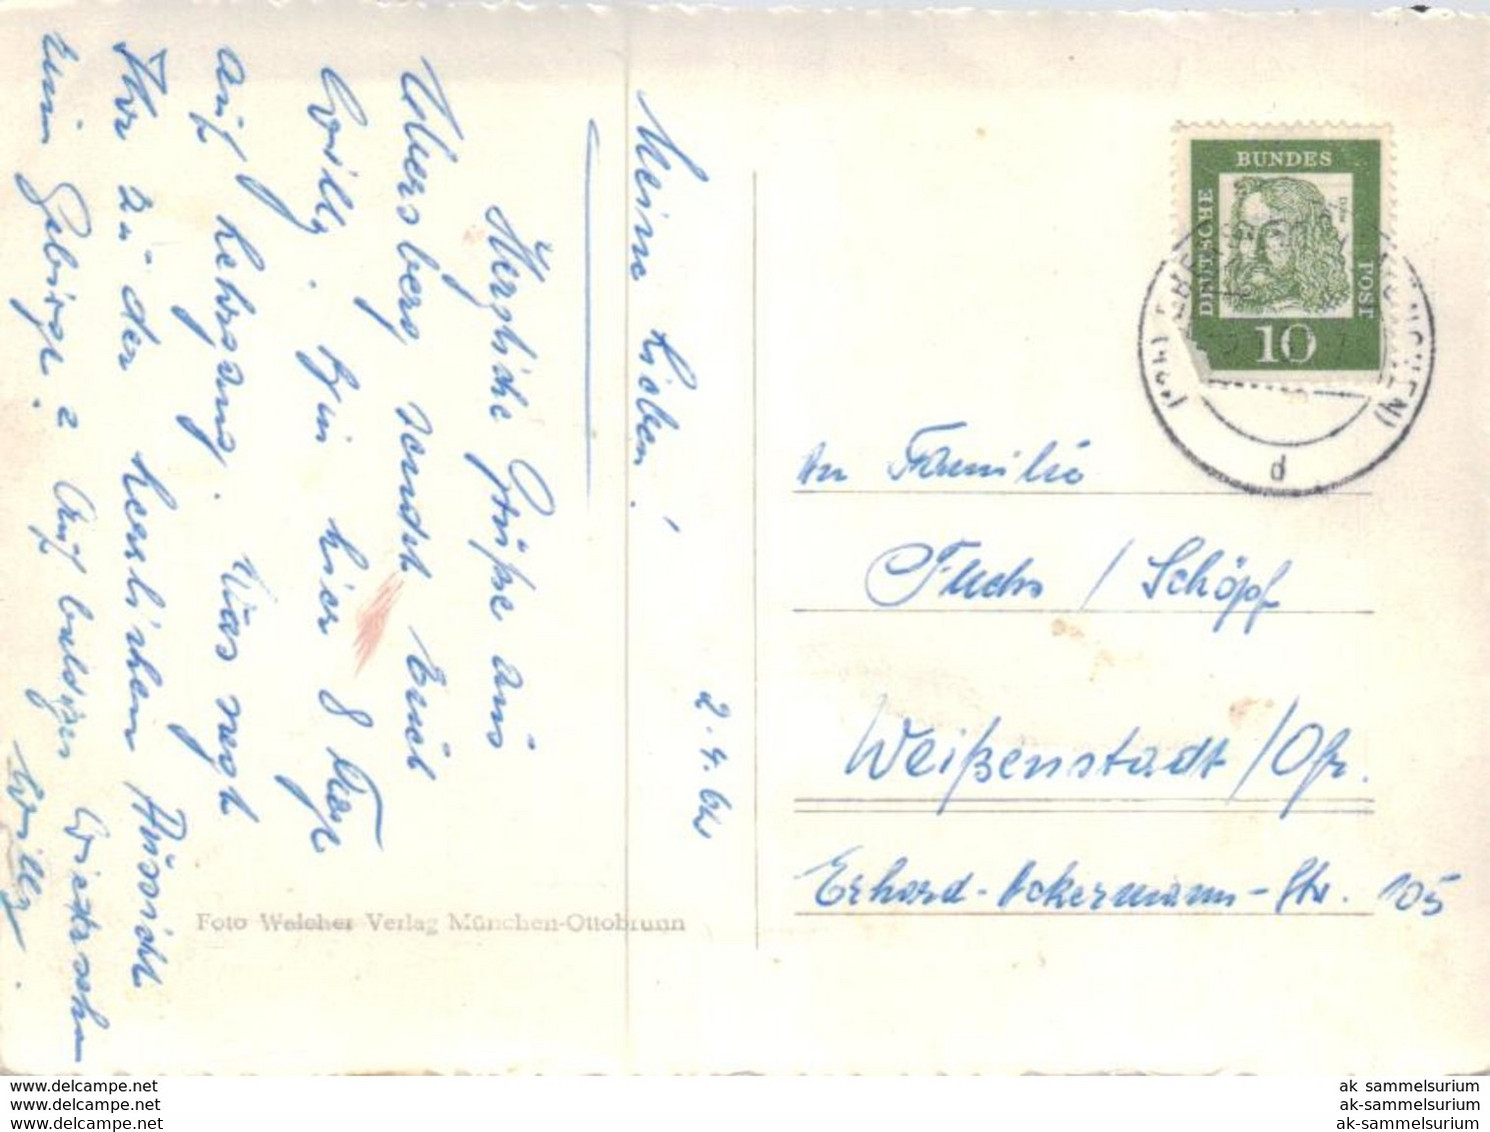 Meine Lieben!
2.4.64
Herzliche Grüße aus
Ebersberg sendet Euch
Willy. Bin hier 8 Tage
auf Lehrgang. Was sagt
Ihr zu der herrlichen Aussicht
zum Gebirge? Auf baldiges Wiedersehn
Willy.
Foto Welcher Verlag München-Ottobrunn
DEUTSCHE
BUNDES
POST
10
d
An Familie
Fuchs / Schöpf
Weißenstadt / Ofr.
Erhard-Ackermann-Str. 105
www.delcampe.net
www.delcampe.net
www.delcampe.net
ak_sammelsurium
ak-sammelsurium
ak-sammelsurium